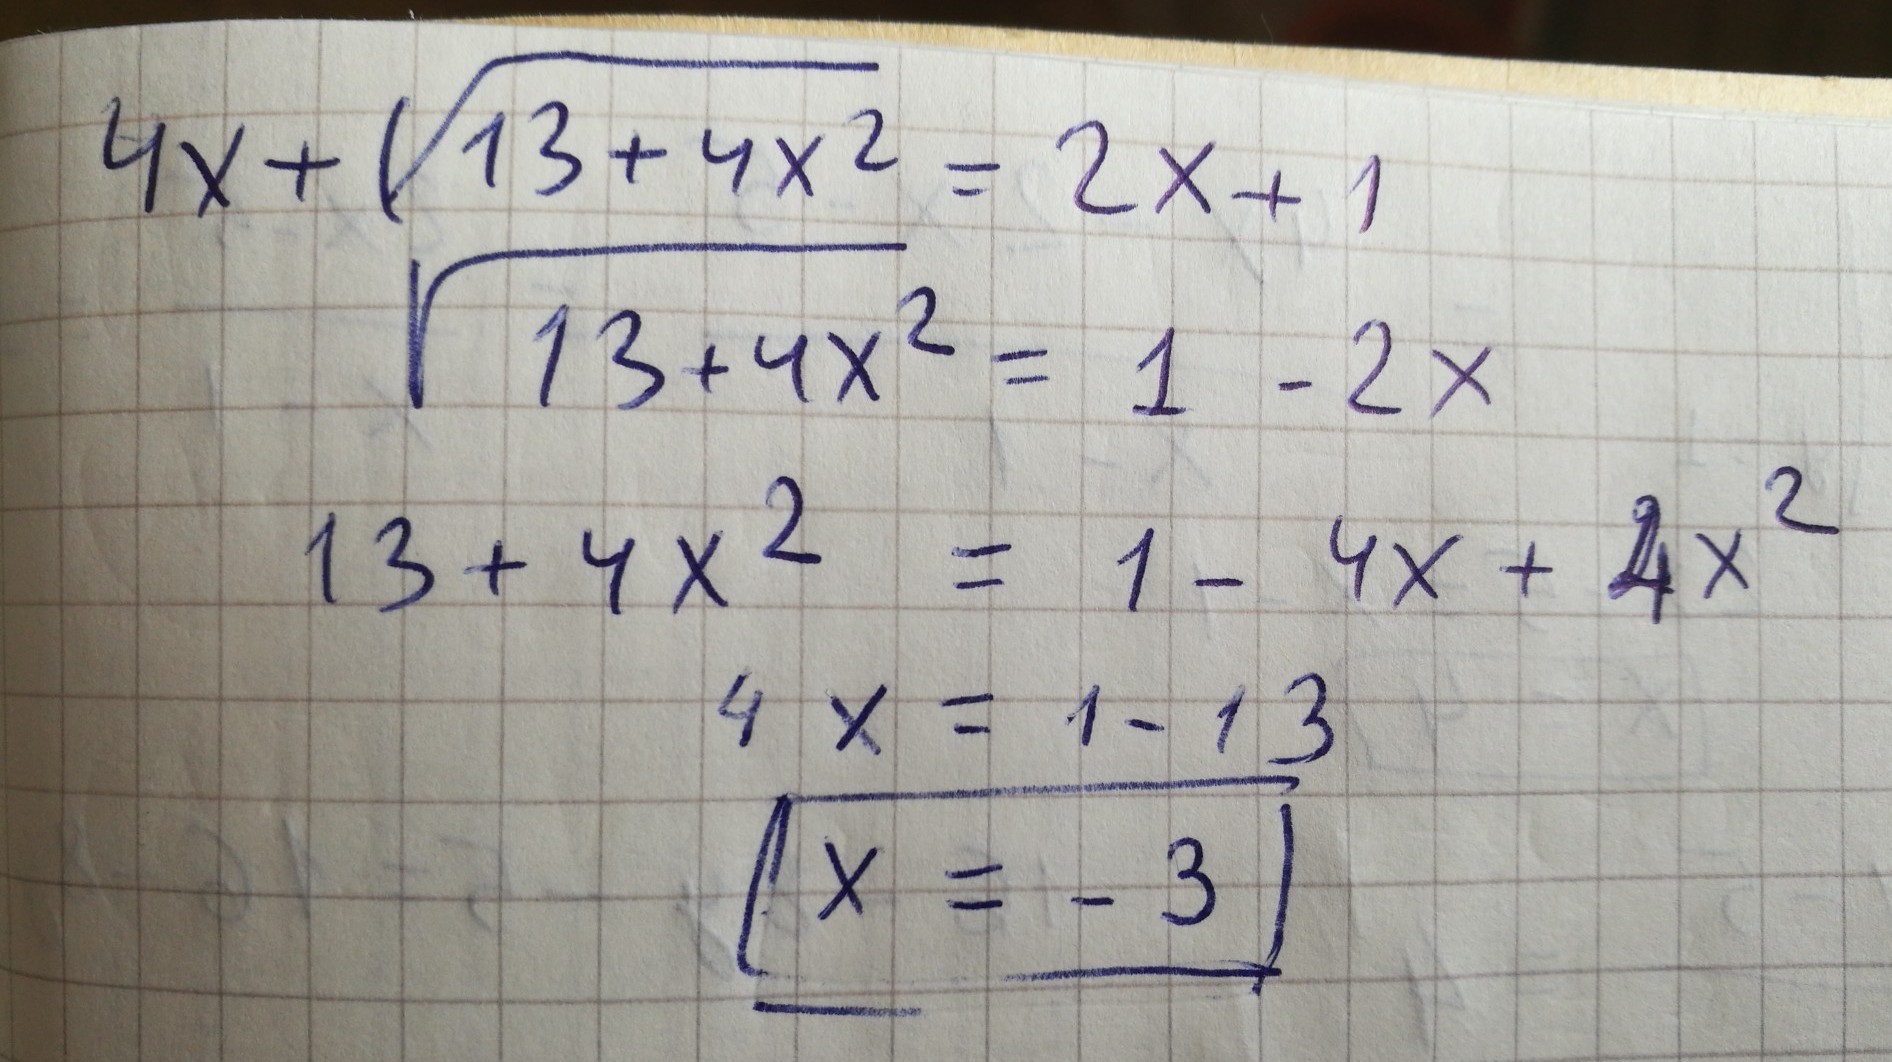 4x + √(13 + 4x²) = 2x + 1
√(13 + 4x²) = 1 - 2x
13 + 4x² = 1 - 4x + 4x²
4x = 1 - 13
x = - 3